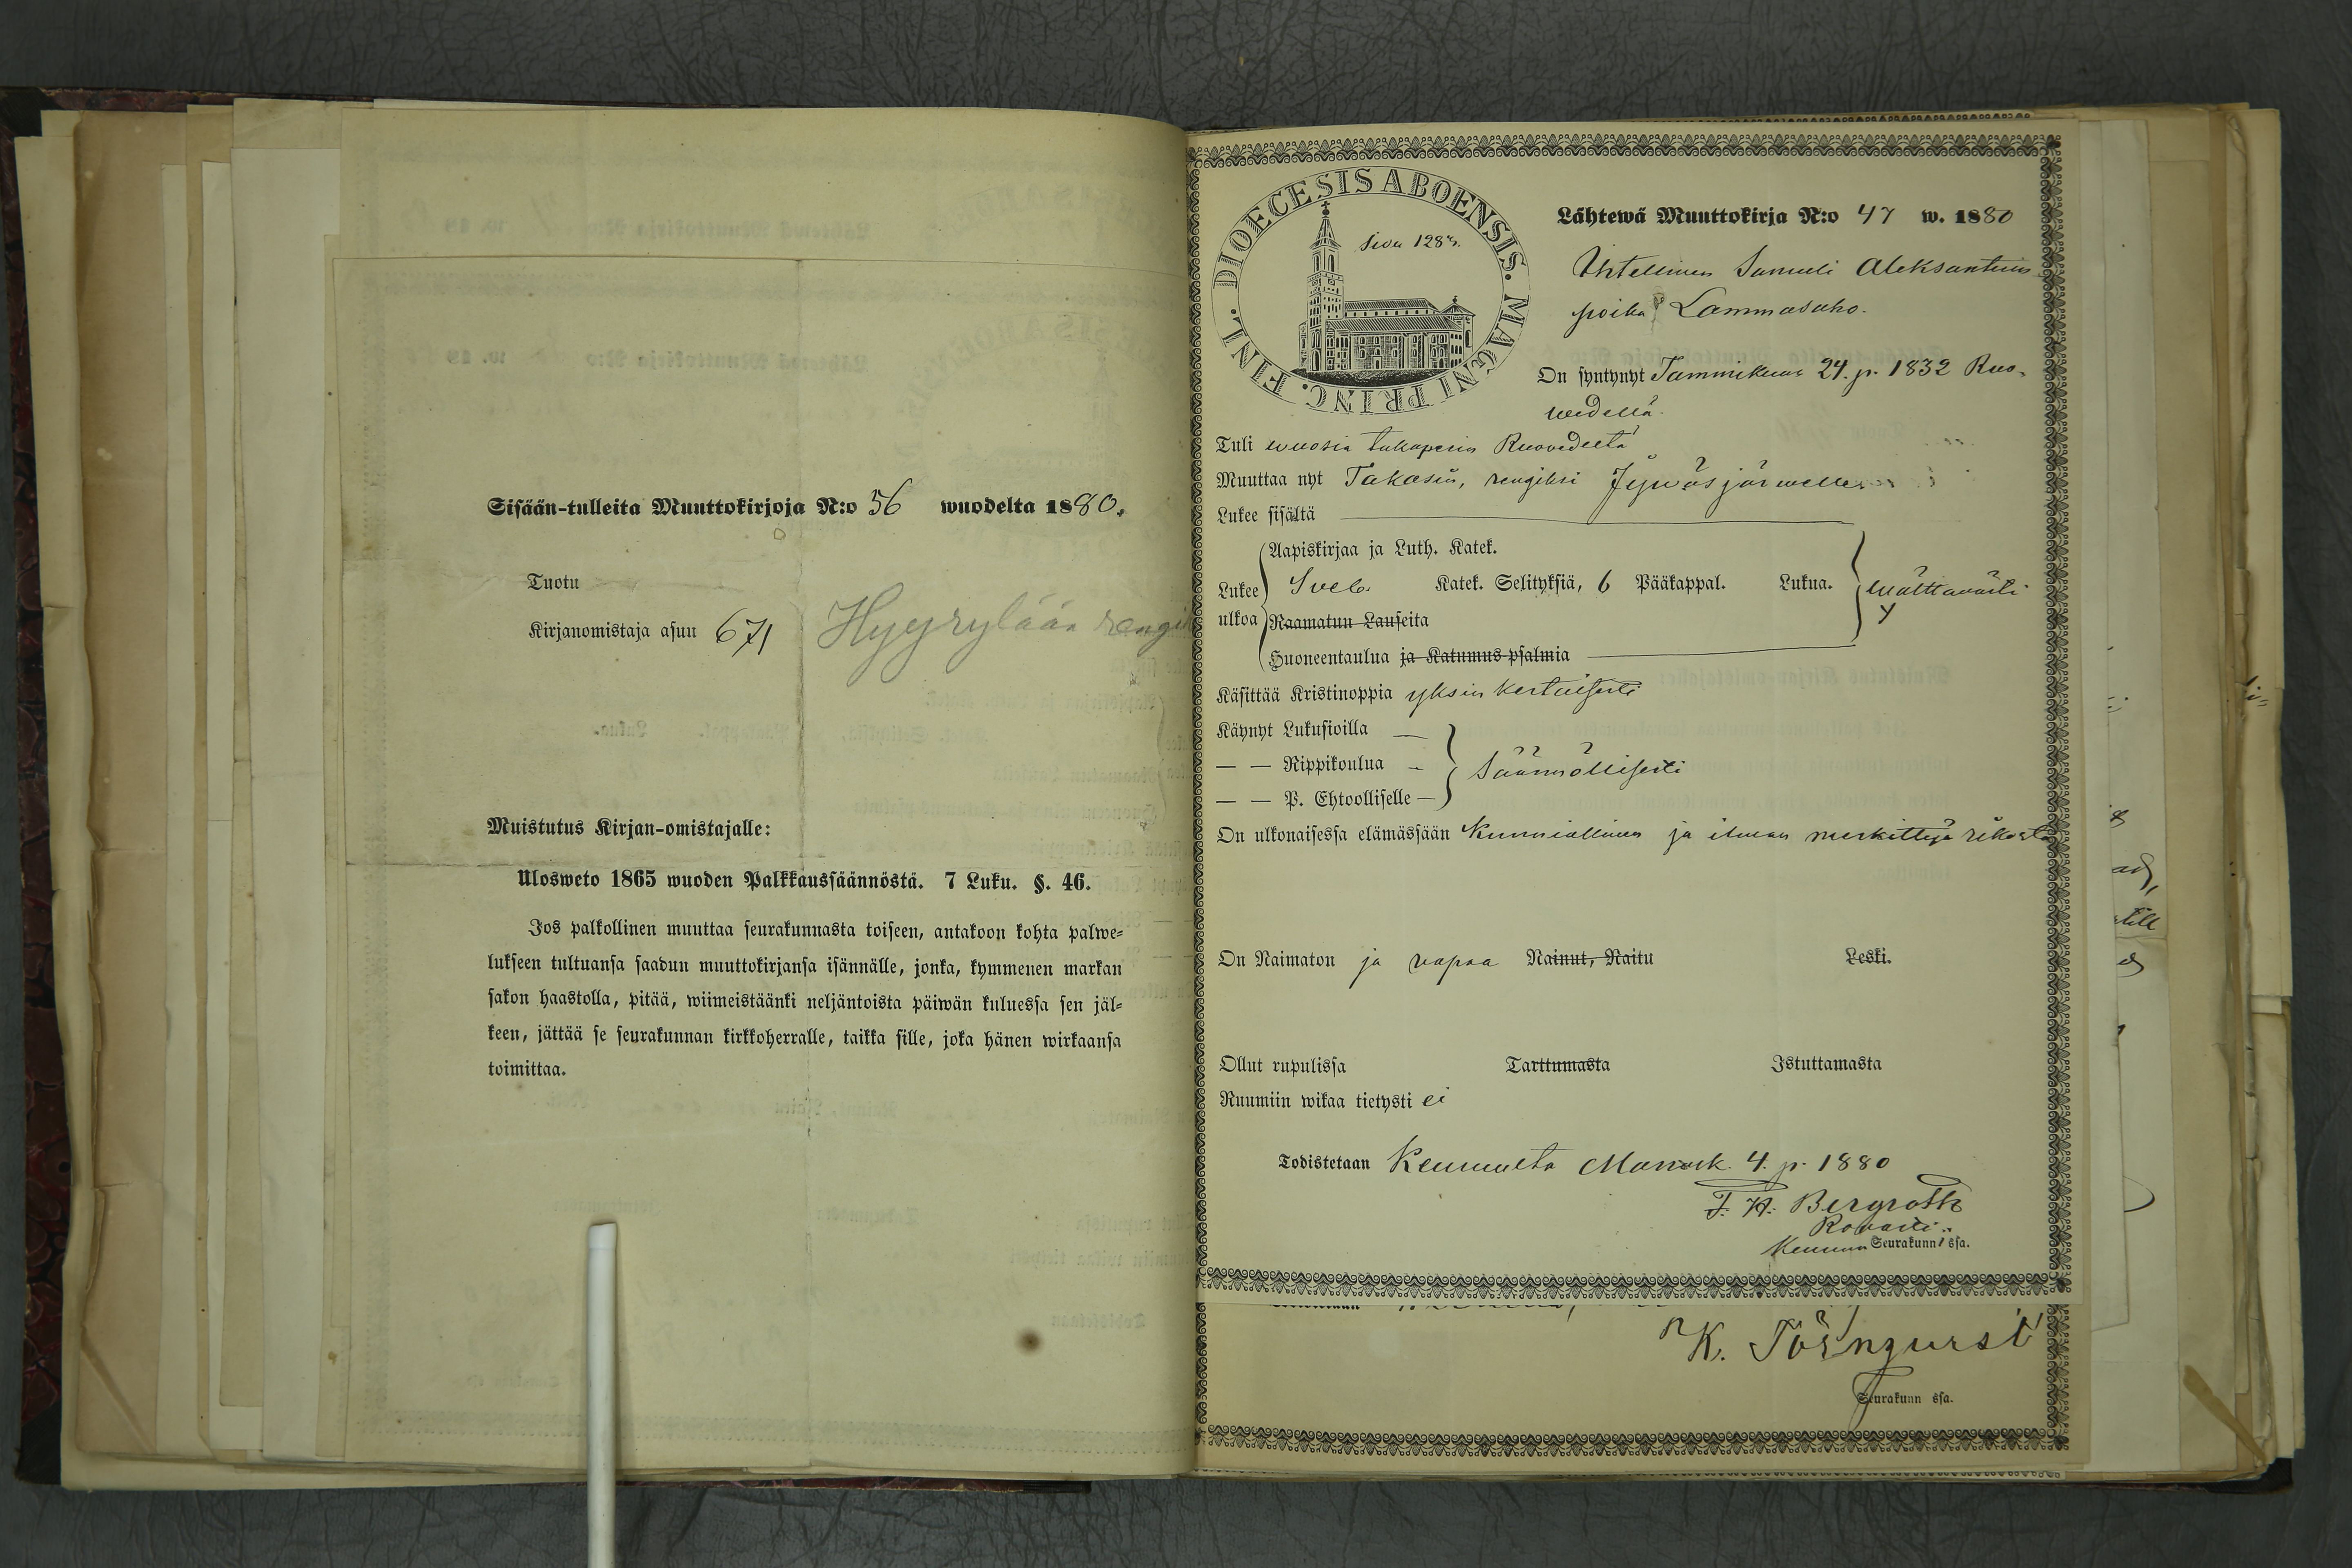 Sisään-tulleita Muuttokirjoja N:o 56 wuodelta 1880.
Tuotu
Kirjanomistaja asuu 671 Hyyrylään rengi
Muistutus Kirjan-omistajalle:
Ulosweto 1865 wuoden Palkkaussäännöstä. 7 Luku. §. 46.
Jos palkollinen muuttaa seurakunnasta toiseen, antakoon kohta palwe-
lukseen tultuansa saadun muuttokirjansa isännälle, jonka, kymmenen markan
sakon haastolla, pitää, wiimeistäänki neljäntoista päiwän kuluessa sen jäl-
keen, jättää se seurakunnan kirkkoherralle, taikka sille, joka hänen wirkaansa
toimittaa.
DIOECESIS ABOENSIS. MAGNI PRINC. FINL.
Siwu 1283.
Lähtewä Muuttokirja N:o 47 w. 1880
Itsellinen Samuli Aleksanterin
poika Lammasaho.
On syntynyt Tammikuun 24. p. 1832 Ruo-
wedellä.
Tuli wuosia takaperin Ruowedeltä
Muuttaa nyt Takasin, rengiksi Jywäsjärwelle.
Lukee sisältä
Aapiskirjaa ja Luth. Katek.
Lukee ulkoa Sveb. Katek. Selityksiä, 6 Pääkappal. Lukua. wälttäwästi
Raamatun Lauseita
Huoneentaulua ja Katumus-psalmia
Käsittää Kristinoppia yksinkertaisesti
Käynyt Lukusioilla
— — Rippikoulua Säännöllisesti
— — P. Ehtoolliselle
On ulkonaisessa elämässään kunniallinen ja ilman merkittyjä rikosta
On Naimaton ja vapaa Nainut, Naitu Leski.
Ollut rupulissa Tarttumasta Istuttamasta
Ruumiin wikaa tietysti ei
Todistetaan Keuruulta Marrask. 4. p. 1880
F. H. Bergroth
Rovasti.
Keuruun Seurakunnassa.
K. Törnqvist
Seurakunn ssa.